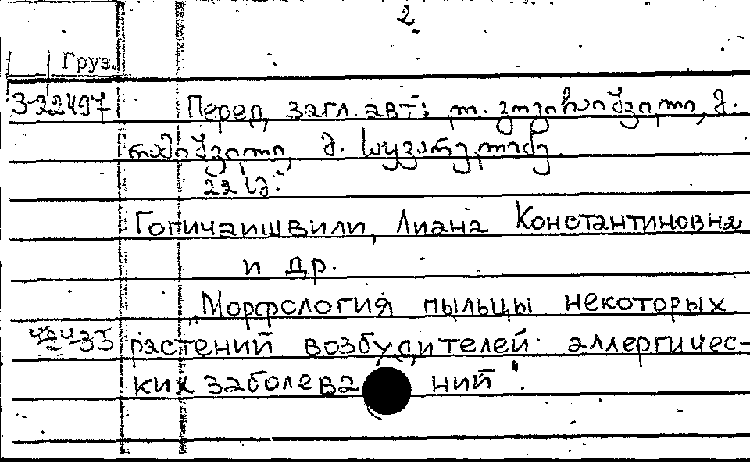 2
Груз.
3-32497 Перед загл. авт.: ლ. გოგიჩაიშვილი, მ.
მ. სიხარულიძე
Гогичаишвили, Лиана Константиновна
и др.
"Морфология пыльцы некоторых
растений возбудителей аллергичес-
ких заболеваний".